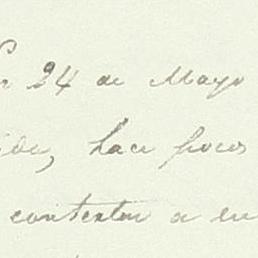 24 de Mayo
hace pocos
contestar a